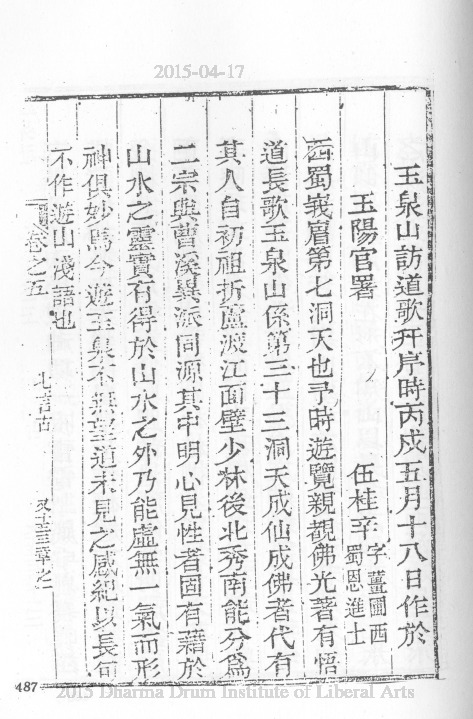 2015-04-17
玉泉山訪道歌幷序時丙戍五月十八日作於
玉陽官署
伍桂辛 字薑圃西
蜀恩進士
西蜀峩眉第七洞天也予時遊覽親覩佛光著有悟
道長歌玉泉山係第三十三洞天成仙成佛者代有
其人自初祖折蘆渡江面壁少林後北秀南能分爲
二宗與曹溪異派同源其中明心見性者固有藉於
山水之靈實有得於山水之外乃能虛無一氣而形
神俱妙焉今遊玉泉不無望道未見之感紀以長句
不作遊山淺語也
卷之五
七言古
487
2015 Dharma Drum Institute of Liberal Arts